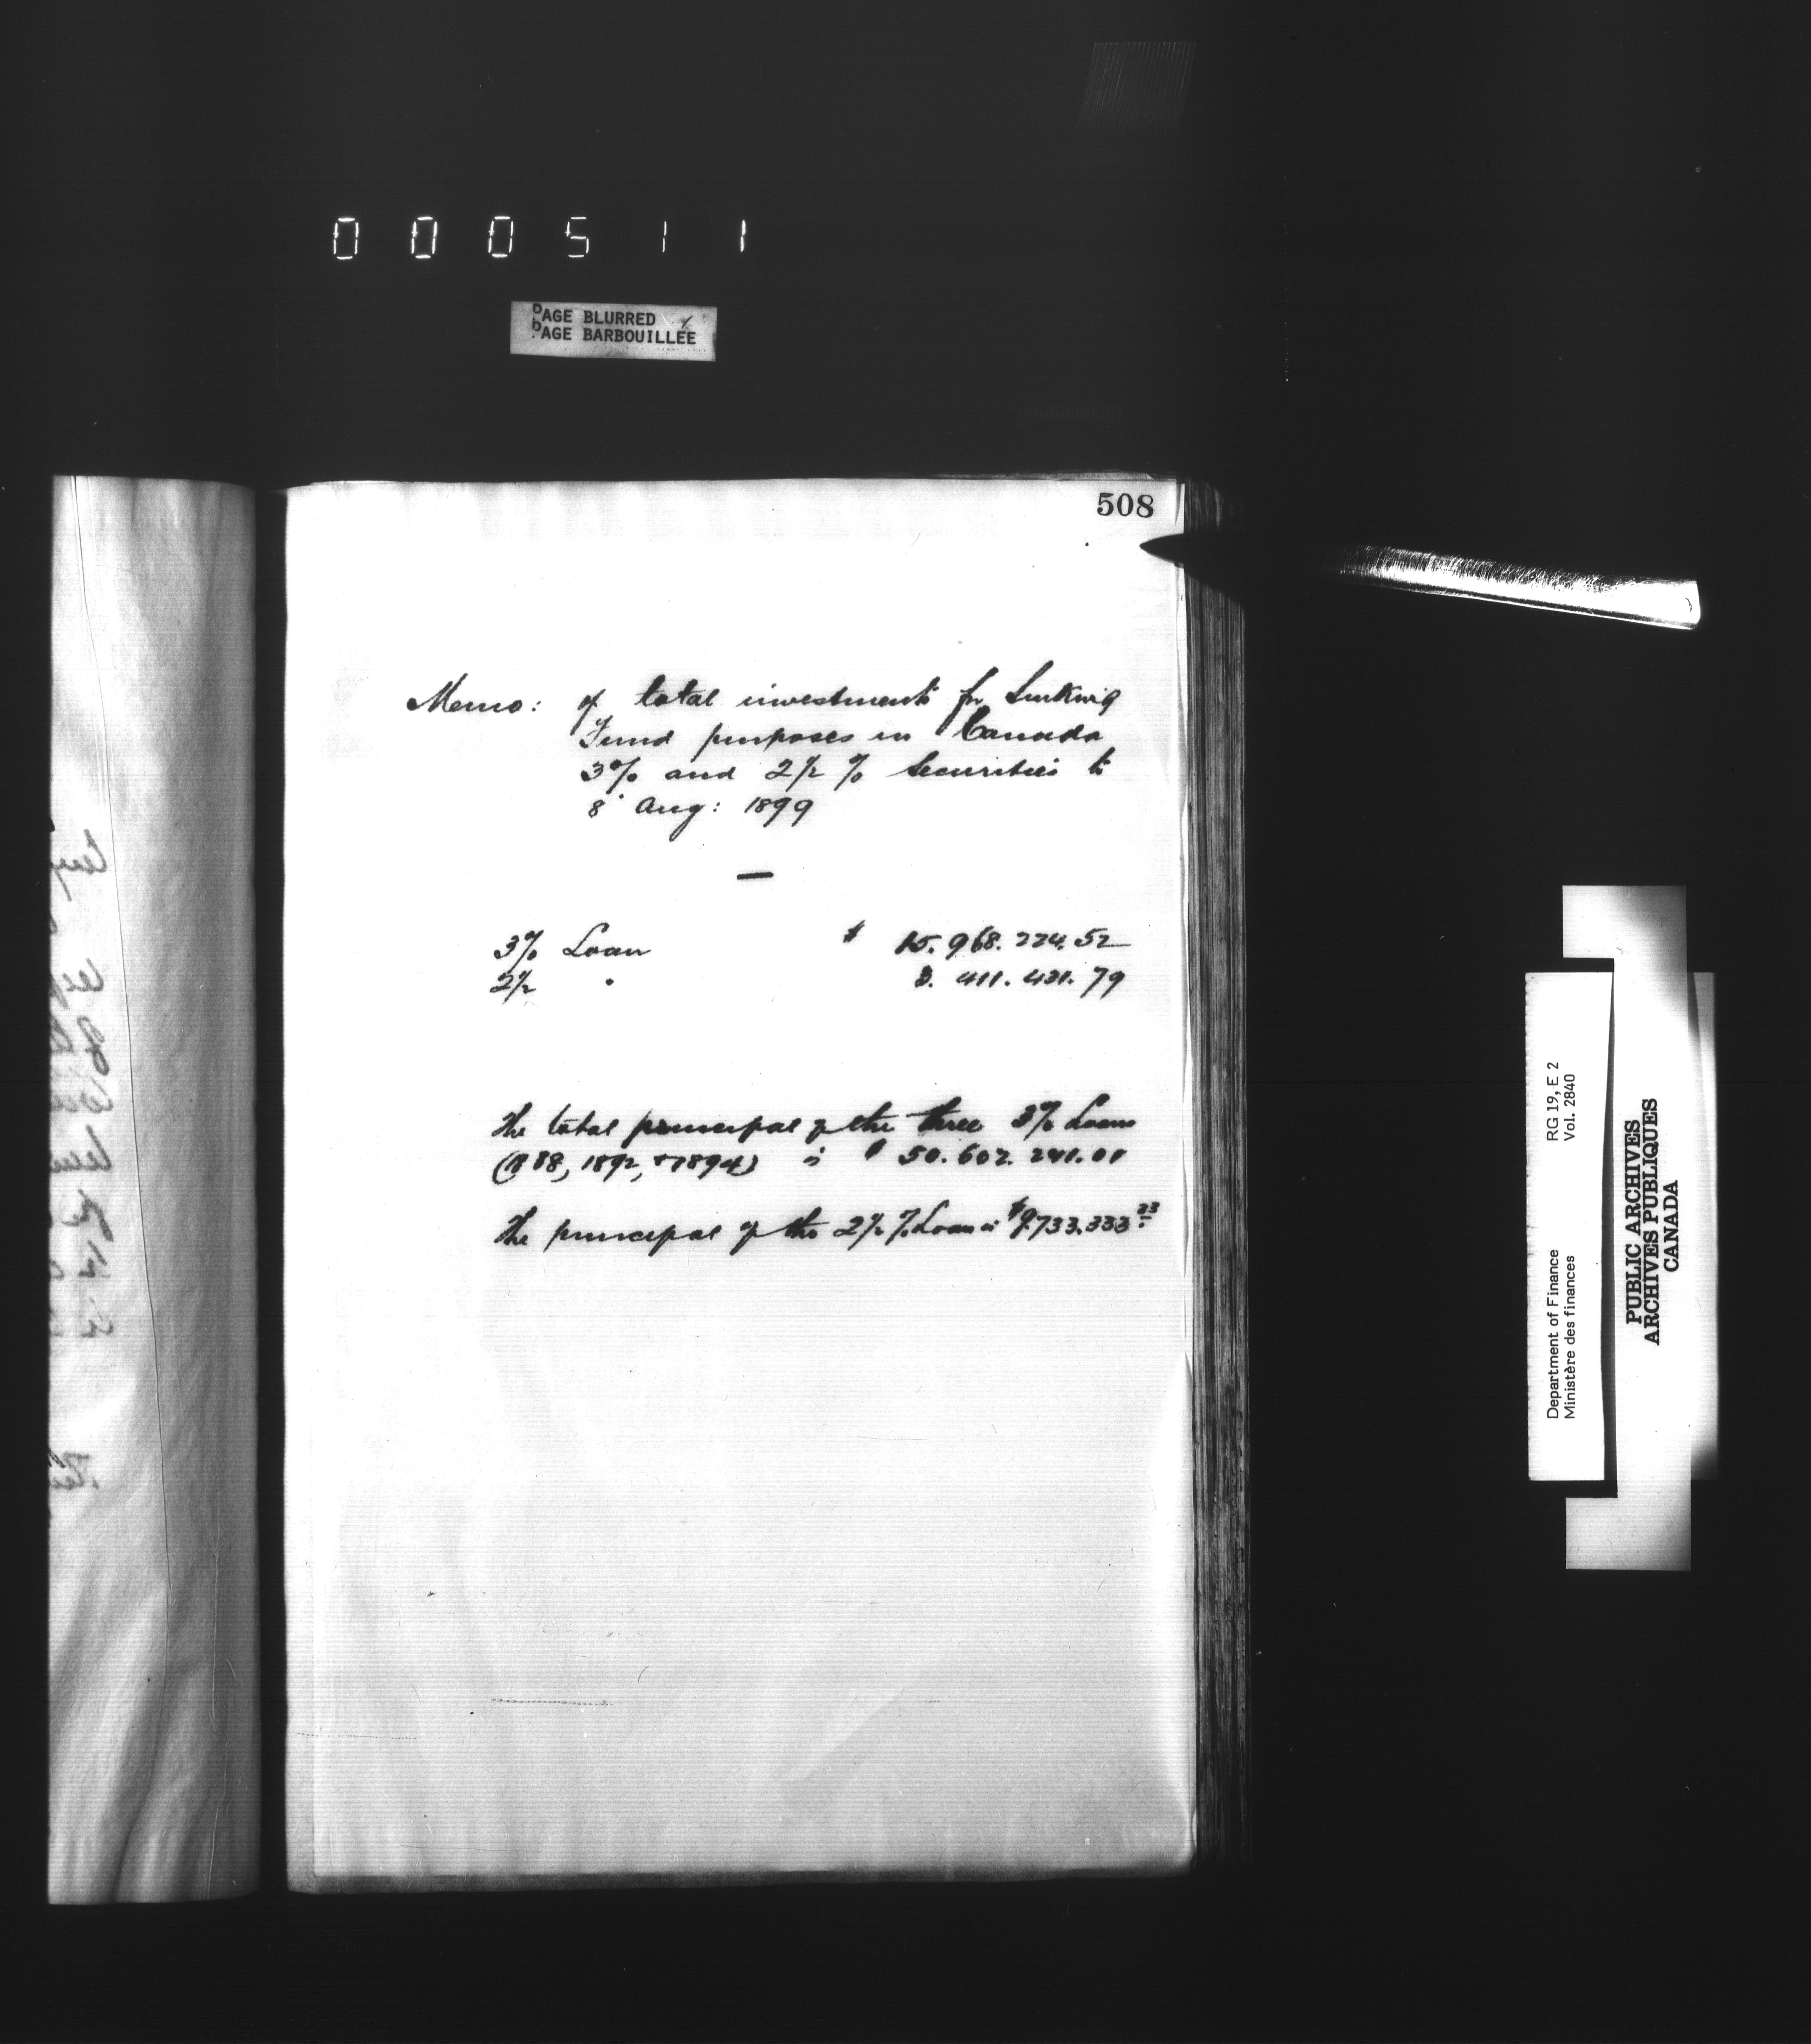 000511
PAGE BLURRED
PAGE BARBOUILLEE
508
Memo: of total investments for Sinking
Fund purposes in Canada
3% and 2½ % Securities to
8 Aug: 1899
3% Loan $ 15.968.224.52
2½ " 3.411.431.79
The total principal of the three 3% Loans
(1888, 1892, + 1894) is $ 50.602.241.01
The principal of the 2½ % Loan is $9.733.333.33
Department of Finance RG 19, E 2
Ministère des finances Vol. 2840
PUBLIC ARCHIVES
ARCHIVES PUBLIQUES
CANADA